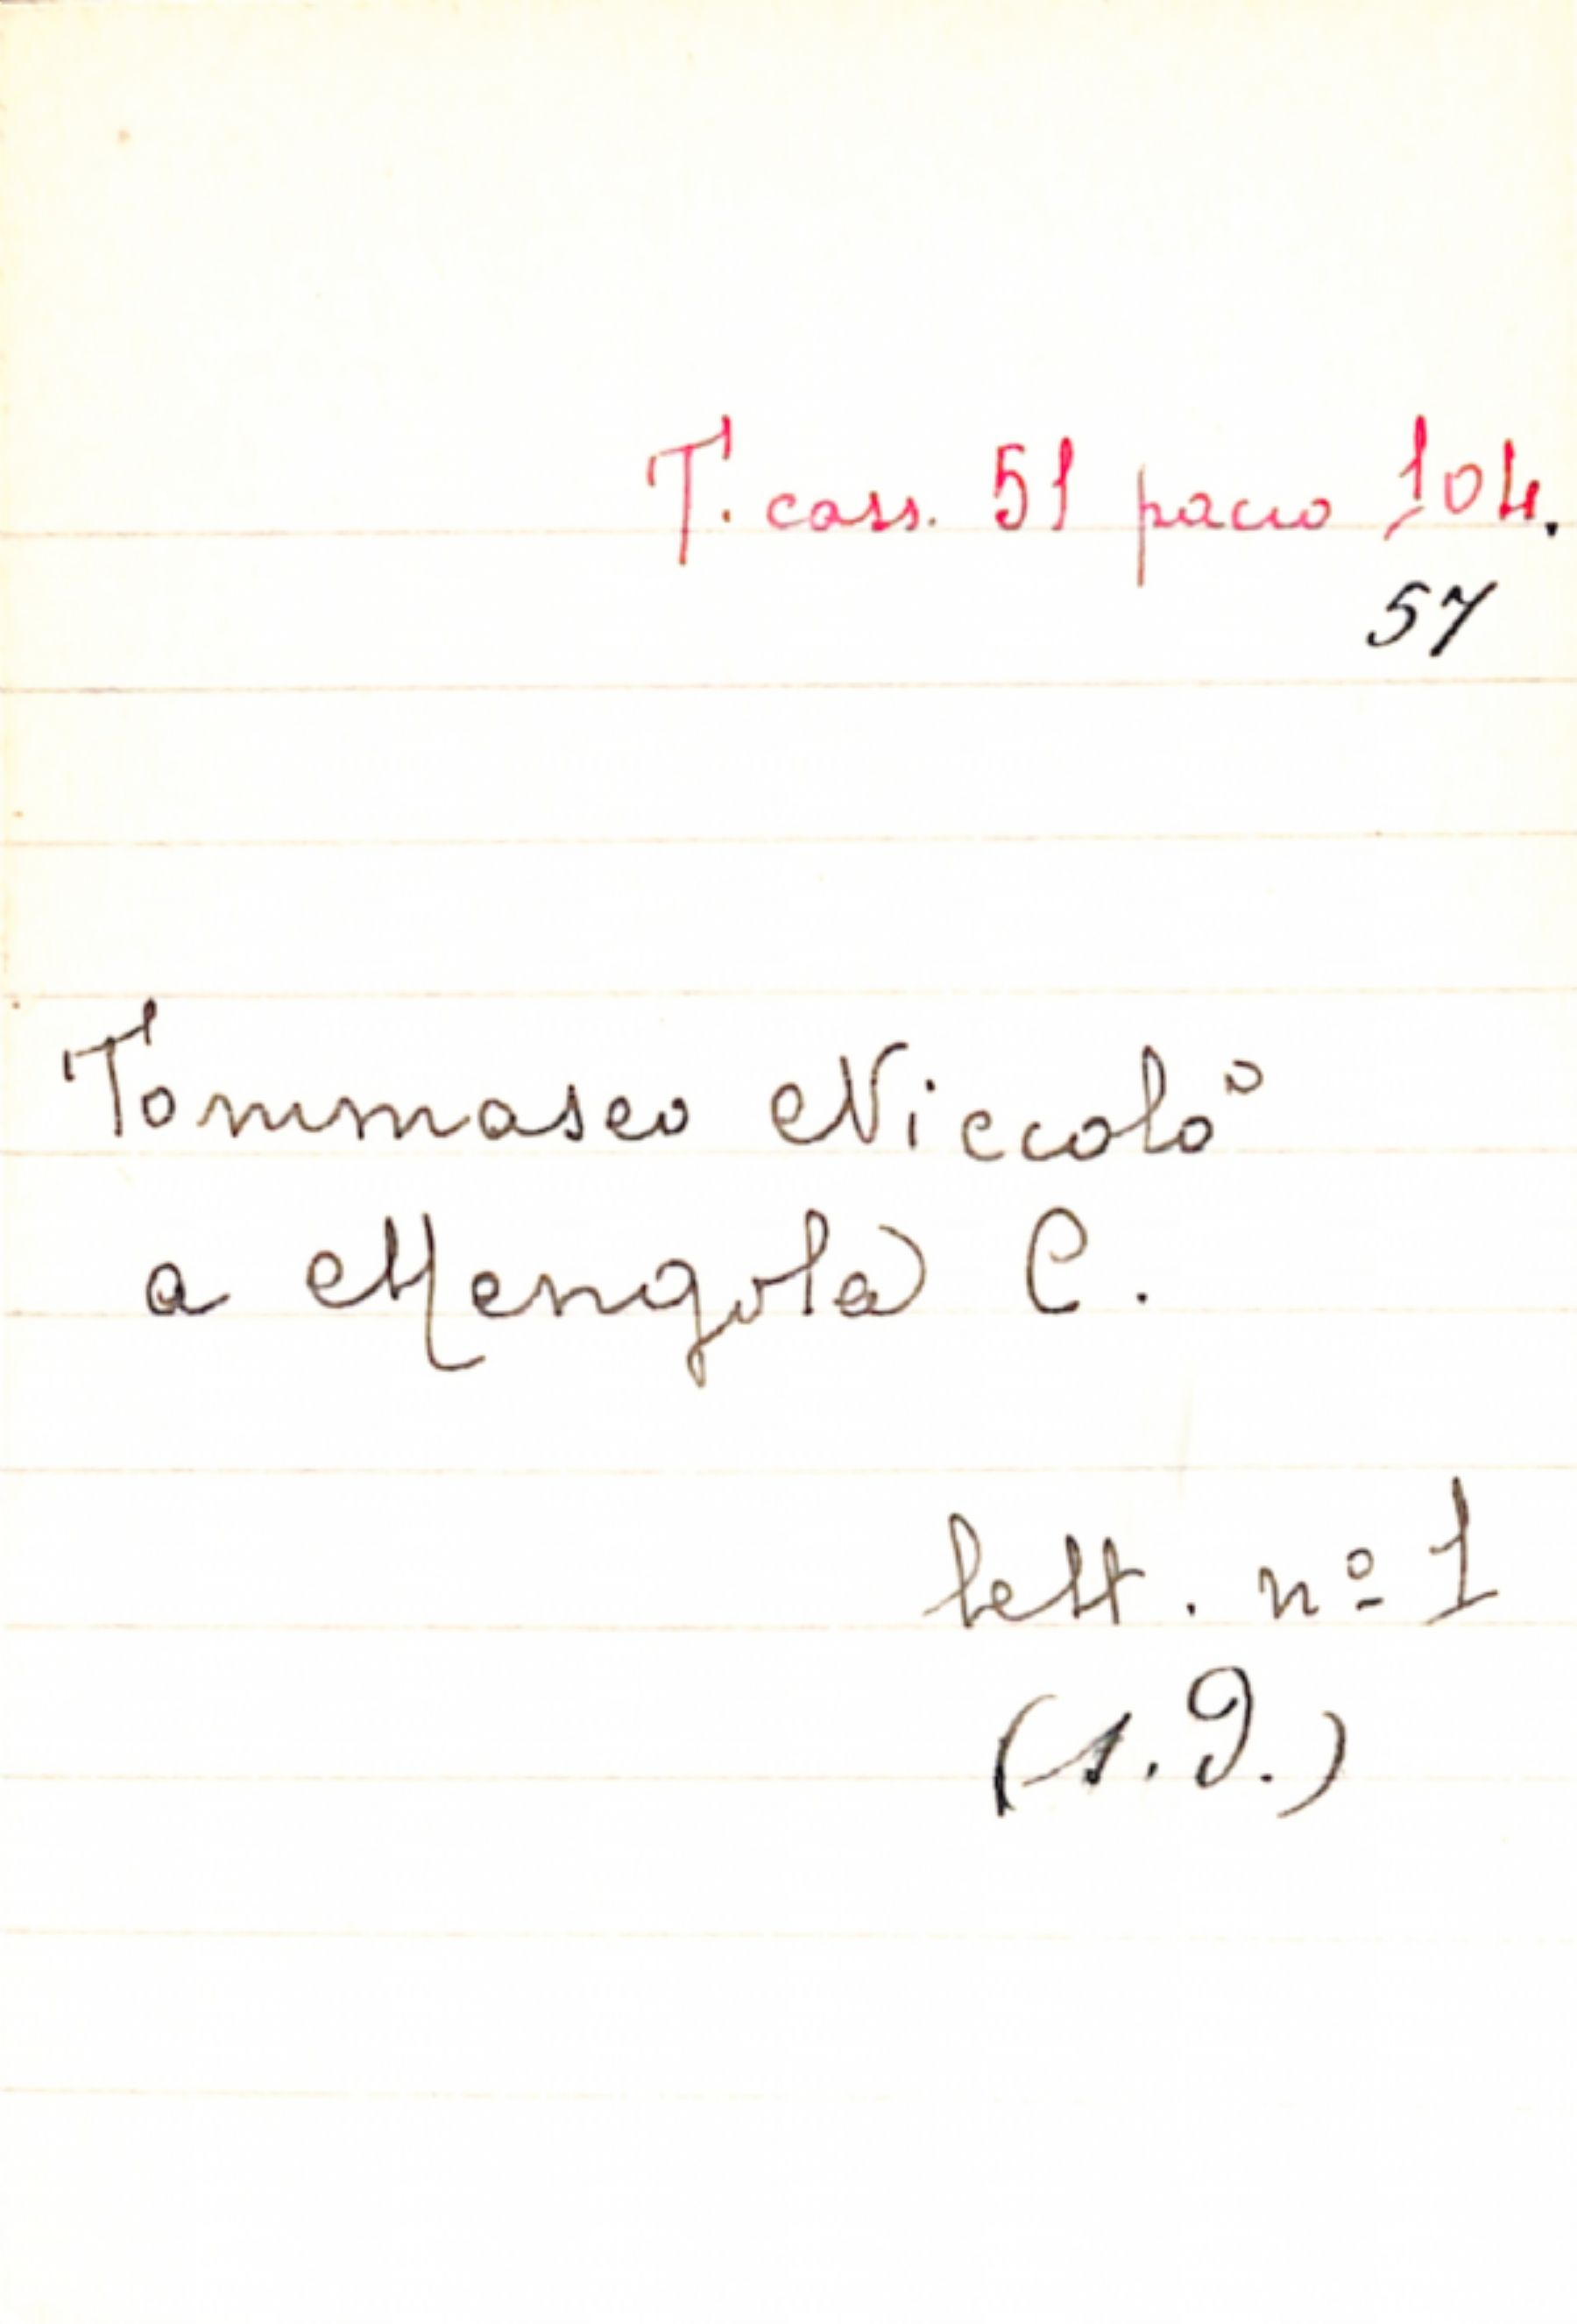 T. cass. 51 pacco 104.
57
Tommaseo Niccolò
a Mengola C.
lett. nº 1
(s.d.)